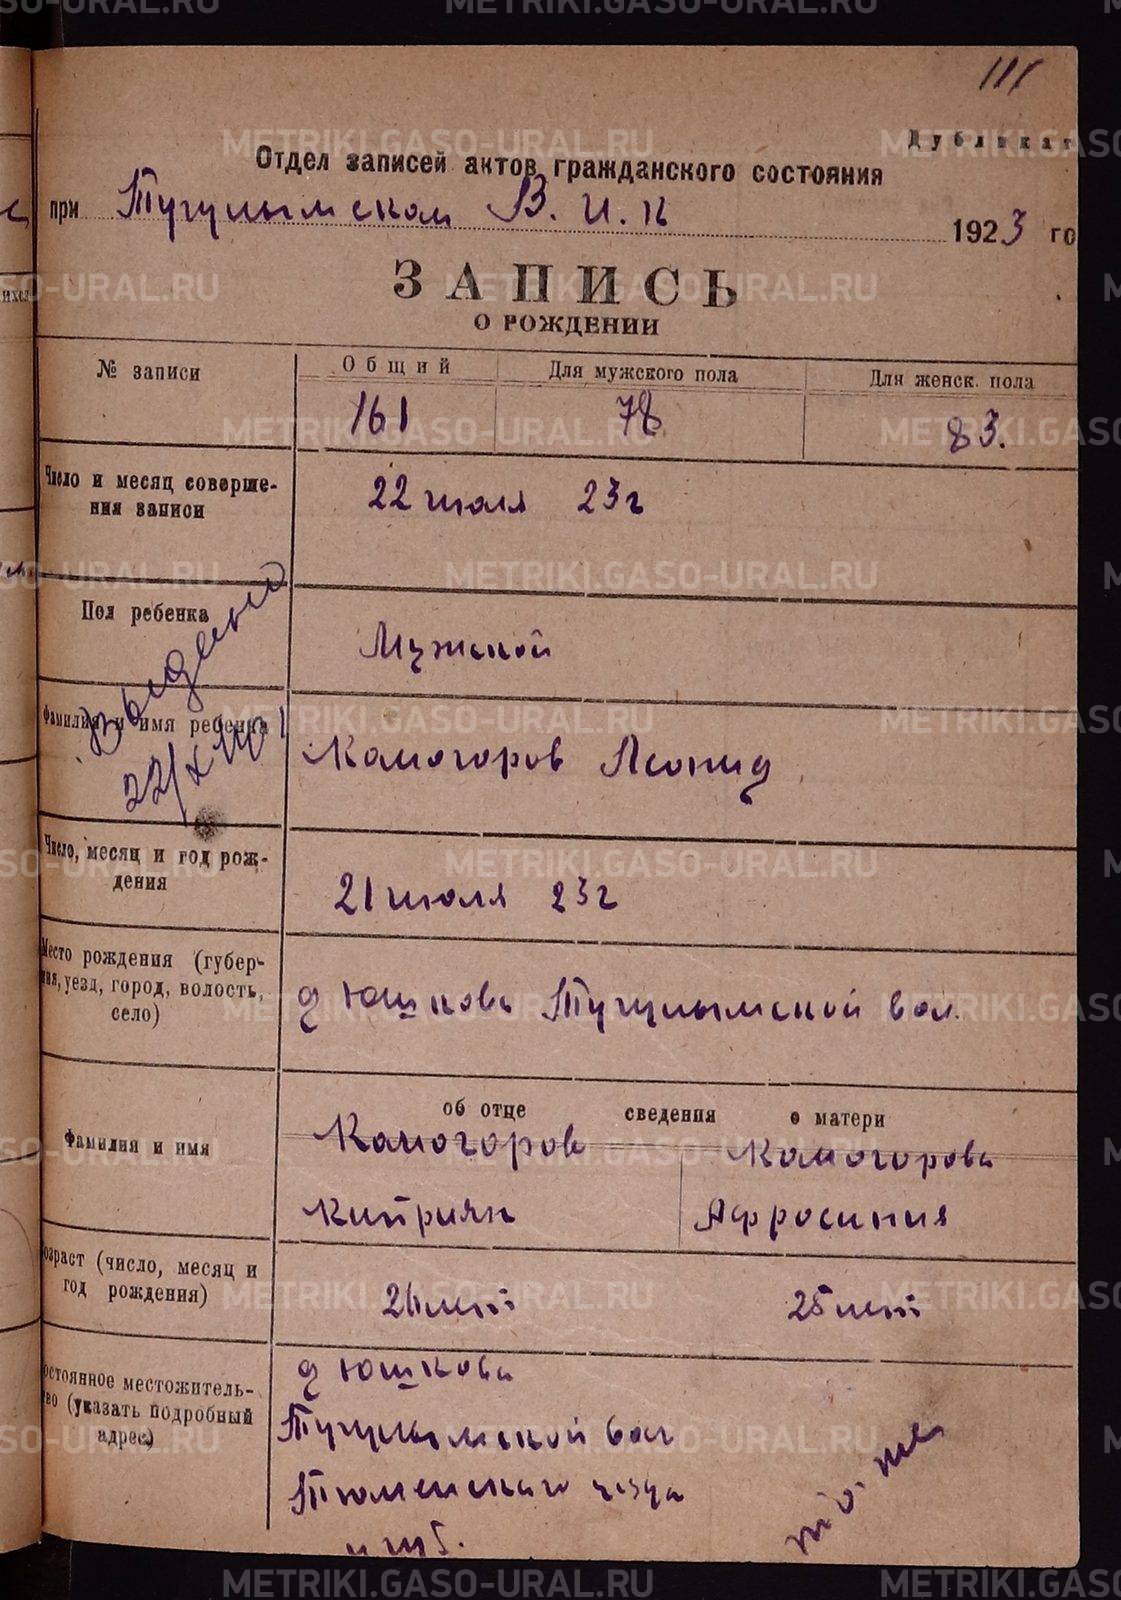 111
Дубликат
Отдел записей актов гражданского состояния
при Тугулымском В.И.К 1923 го
ЗАПИСЬ
О РОЖДЕНИИ
№ записи
Общий Для мужского пола Для женск. пола
161 78 83.
Число и месяц соверше-
ния записи
22 июля 23 г
Пол ребенка
Мужской
Фамилия и имя ребенка
Камогоров Леонид
Число, месяц и год рож-
дения
21 июля 23 г
Место рождения (губер-
ния, уезд, город, волость,
село)
д Юшкова Тугулымской вол.
об отце сведения о матери
Фамилия и имя
Камогоров Камогорова
Киприян Афросиния
Возраст (число, месяц и
год рождения)
26 лет 25 лет
Постоянное местожитель-
тво (указать подробный
адрес)
д Юшкова
Тугулымской вол
Тюменского уезда
то-же
METRIKI.GASO-URAL.RU